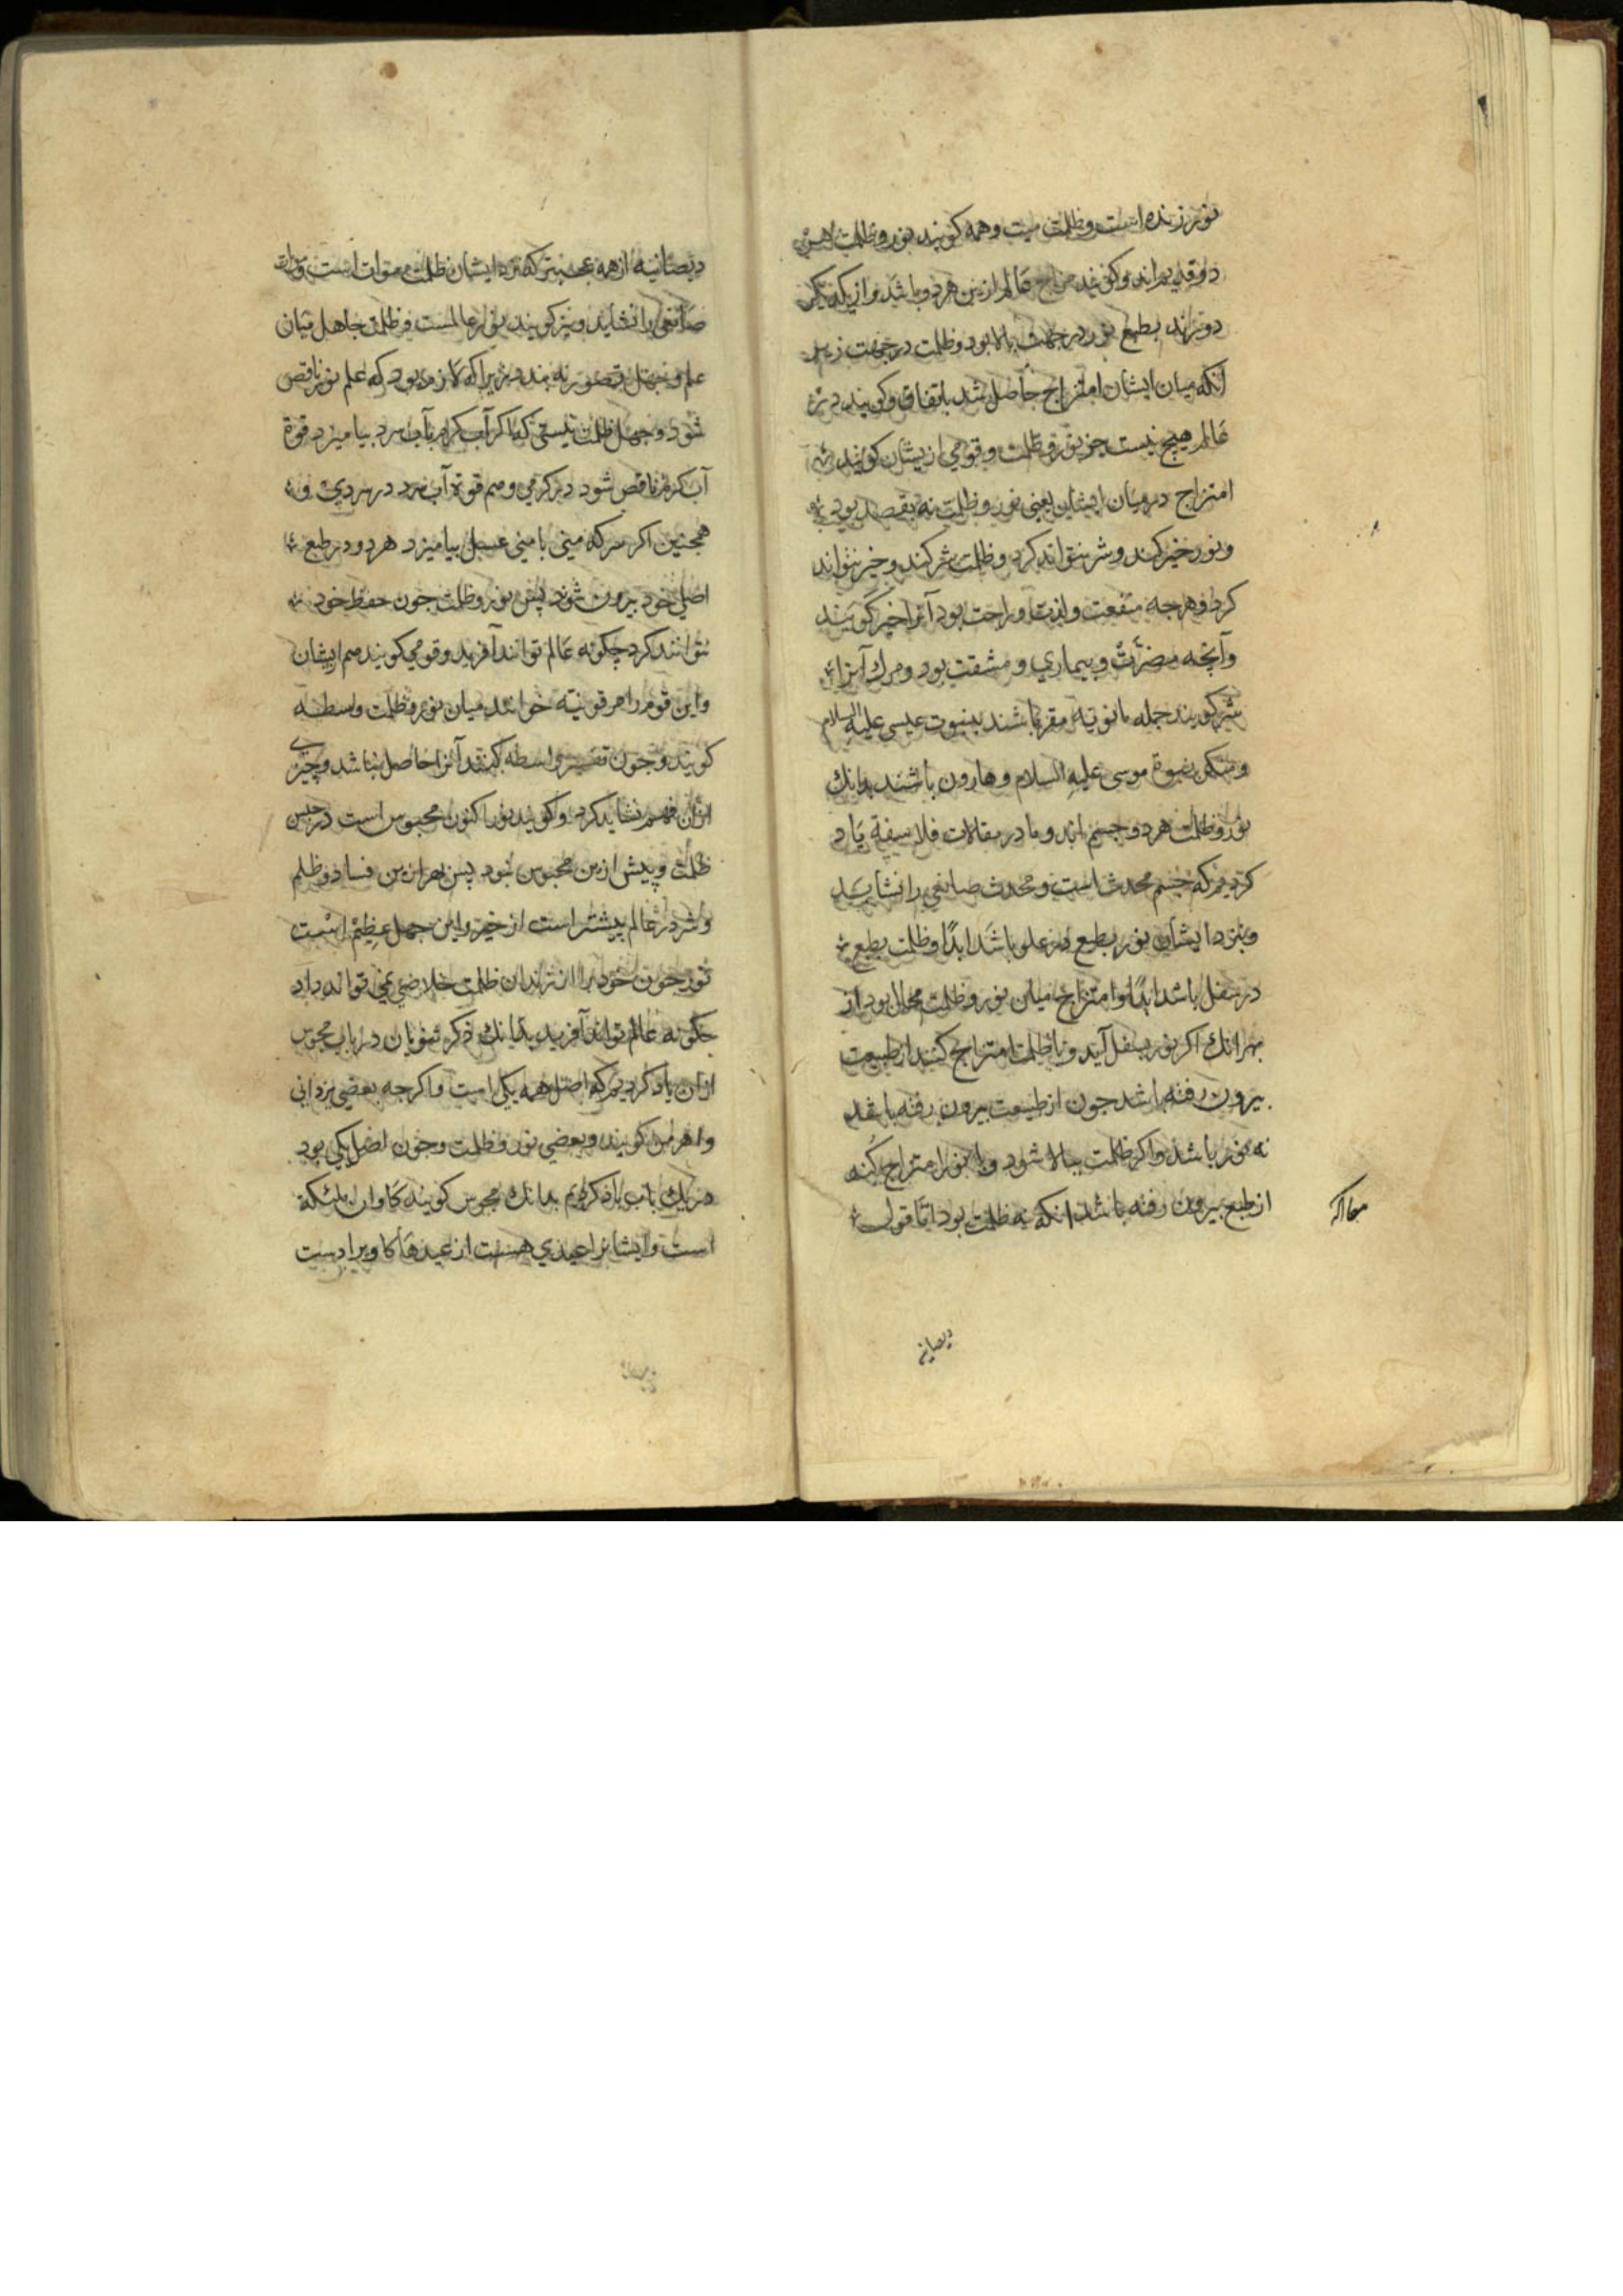 نور زنده است و ظلمت میت و همه کویند نور و ظلمت هر
دو قدیم اند و کویند مزاج عالم ازین هردو باشد و از یکدیکر
دورند بطبع نور در جهت بالا بود و ظلمت در جهت زیر
آنکه میان ایشان امتزاج حاصل شد باتفاق و کویند در
عالم هیچ نیست جز نور و ظلمت و قومی ازیشان کویند
امتزاج در میان ایشان یعنی نور و ظلمت نه بقصد بود
و نور خیر کند و شر نتواند کرد و ظلمت شر کند و خیر نتواند
کرد و هرجه منفعت و لذت و راحت بود آنرا خیر کویند
و آنچه مضرّت و بیماری و مشقت بود و مرك آنرا
شر کویند جمله مانویه مقر باشند بنبوت عیسی علیه السلام
و منکر نبوة موسی علیه السلام و هارون باشند بدانك
نور و ظلمت هردو جسم اند و ما در مقالات فلاسفة یاد
کردیم که جسم محدث است و محدث صانعی را نشاید
و بنزد ایشان نور بطبع در علو باشد ابدًا و ظلمت بطبع
در سفل باشد ابدًا و امتزاج میان نور و ظلمت محال بود از
بهر انك اکر نور بسفل آید و با ظلمت امتزاج کند از طبیعت
بیرون رفته باشد جون از طبیعت بیرون رفته باشد
نه نور باشد و اکر ظلمت ببالا شود و با نور امتزاج کند
از طبع بیرون رفته باشد انکه نه ظلمت بود امّا قول
دیصانیه
دیصانیه از همه عجبتر که نزد ایشان ظلمت موات است و موات
صانعی را نشاید و نیز کویند نور عالمست و ظلمت جاهل میان
علم و جهل تصور نه بندد زیرا که لازم بود که علم نور ناقص
شود و جهل ظلمت نیستی که اکر آب کرم بآب سرد بیامیزد قوة
آب کرم ناقص شود در کرمی و هم قوة آب سرد در سردی و
همجنین اکر سرکه منی با منی عسل بیامیزد هردو در طبع
اصلی خود بیرون شوند پس نور و ظلمت جون حفظ خود
نتوانند کرد چکونه عالم توانند آفرید و قومی کویند هم ازیشان
و این قوم را مرقونیّه خوانند میان نور و ظلمت واسطه
کویند و جون تفسیر واسطه کنند آنرا حاصل نباشد و چیزی
ازان فهم نشاید کرد و کویند نور اکنون محبوس است در حبس
ظلمت و پیش ازین محبوس نبود پس بهر ازین فساد و ظلم
و شر در عالم بیشتر است از خیر و این جهل عظیم است
نور جون خود را از زندان ظلمت خلاصی نمی تواند داد
جکونه عالم تواند آفرید بدانك ذکر ثنویان در باب مجوس
ازان یاد کردیم که اصل همه یکی است و اکرجه بعضی یزدانی
و اهرمن کویند و بعضی نور و ظلمت و جون اصل یکی بود
در یك باب یاد کردیم بدانك مجوس کویند کاوان ملئکة
است و ایشانرا عیدی هست از عیدها کاو را دست